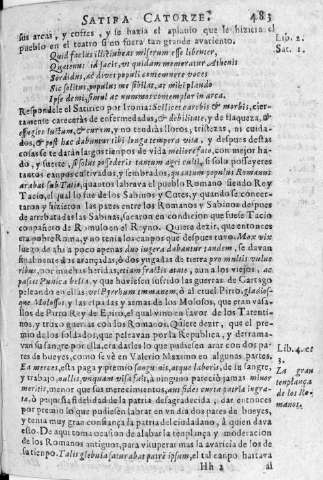 SATIRA CATORZE. 483
sus arcas, y cofres, y se hazia el aplauso que le hiziera el
pueblo en el teatro si en fuera tan grande avariento.
Lib. 2.
Sat. 1.
Quid facias illi? iubeas miserum esse libenter,
Quatenus id facit, ut quidam memoratur Athenis
Sordidus, ac dives populi contemnere voces
Sic solitus, populus me sibilat, at mihi plaudo
Ipse domi, simul ac nummos contemplor in arca.
Respondele el Satirico por Ironia: Scilicet carebis & morbis, cier-
tamente carecerás de enfermedades, & debilitate, y de flaqueza, &
effugies luctum, & curam, y no tendrás lloros, tristezas, ni cuida-
dos, & post hac dabuntur tibi longa tempora vita, y despues destas
cosas se te darán largos tiempos de vida meliore fato, con mejor ha-
do, y suerte, si solus possederis tantum agri culti, si solo posseyeres
tantos campos cultivados, y sembrados, quantum populus Romanus
arabat sub Tacio, quantos labrava el pueblo Romano siendo Rey
Tacio, el qual lo fue de los Sabinos y Cures, y quando se concer-
taron y hizieron las pazes entre los Romanos y Sabinos despues
de arrebatadas las Sabinas, sacaron en condicion que fuesse Tacio
compañero de Romulo en el Reyno. Quiere dezir, que entonces
era pobre Roma, y no tenia los campos que despues tuvo. Mox
luego de ahi a poco apenas duo iugera dabantur tandem, se davan
finalmente dos arançadas, ó dos yugadas de tierra pro multis vulne
ribus, por muchas heridas, etiam fractis atate, aun a los viejos, ac
passis Punica bella, y que huviesen sufrido las guerras de Cartago
peleando en ellas, vel Pyrrhum immanem, ó al cruel Pirro, gladios-
que Molossos, y las espadas y armas de los Molosos, que eran vasa-
llos de Pirro Rey de Epiro, el qual vino en favor de los Tarenti-
nos, y truxo guerras con los Romanos. Quiere dezir, que el pre-
mio de los soldados, que peleavan por la Republica, y derrama-
van su sangre por ella, era darles lo que pudiesen arar con dos pa-
res de bueyes, como se vè en Valerio Maximo en algunas partes.
Lib. 4. ct
3.
La gran
templança
de los Ro-
manos.
Ea merces, esta paga y premio sanguinis, atque laboris, de su sangre,
y trabajo, nullis, unquam visa est, a ninguno pareció jamás minor
meritis, menor que sus merecimientos, aut fides curta patria ingra-
ta, ó poquissima fidelidad de la patria desagradecida, dar entonces
por premio lo que pudiesen labrar en vn dia dos pares de bueyes,
y tenia muy gran confiança la patria del ciudadano, á quien dava
esto. De aqui toma ocasion de alabar la templança y moderacion
de los Romanos antiguos, para vituperar mas la avaricia de los de
su tiempo. Talis glebula saturabat patrē ipsum, el tal campo hartava
Hh 2
al